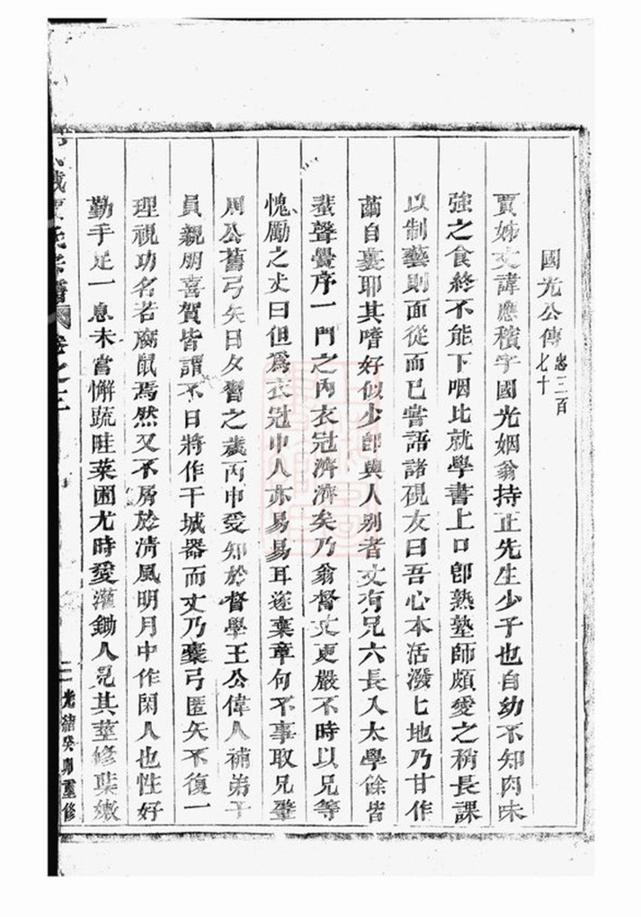 國光公傳忠三百七十
賈姊丈諱應積字國光姻翁持正先生少子也自幼不知肉味
強之食終不能下咽比就學書上口卽熟塾師頗愛之稍長課
以制藝則面從而已嘗語諸硯友曰吾心本活潑七地乃甘作
繭自裹耶其嗜好似少卽與人别者丈有兄六長入太學餘皆
蜚聲黌序一門之內衣冠濟濟矣乃翁督丈更嚴不時以兄等
愧勵之丈曰但爲衣冠中人亦易易耳遂棄章句不事取兄璧
周公舊弓矢日夕習之歲丙申受知於督學王公偉人補弟子
員親朋喜賀皆謂不日將作干城器而丈乃櫜弓匿矢不復一
理視功名若腐鼠焉然又不屑於清風明月中作閑人也性好
勤手足一息未嘗懈蔬畦菜圃尤時愛灌鋤人見其莖修葉嫩
賈氏宗譜 卷之二
光緒癸卯重修